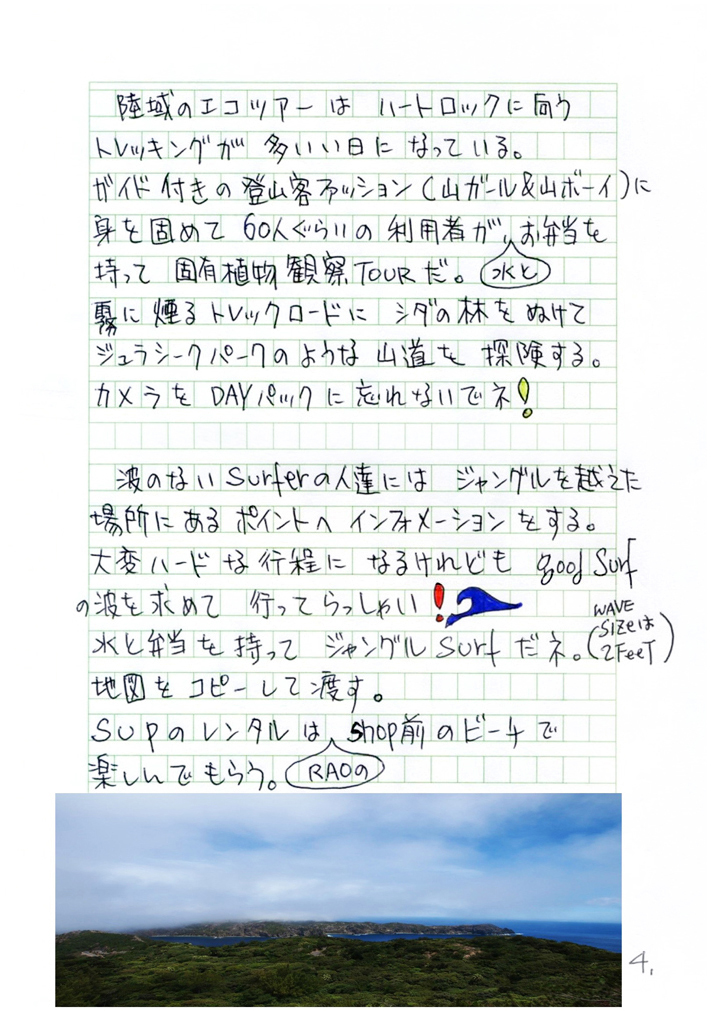 陸域のエコツアーは ハートロックに向う
トレッキングが 多いい日に なっている。
ガイド付きの登山客ファッション(山ガール&山ボーイ)に
身を固めて 60人ぐらいの 利用者が、水とお弁当を
持って 固有植物観察TOURだ。
霧に煙るトレックロードに シダの林をぬけて
ジュラシークパークのような 山道を 探険する。
カメラを DAYパックに忘れないでネ!
波のない Surferの人達には ジャングルを越えた
場所にある ポイントへ インフォメーションをする。
大変ハードな行程に なるけれども good Surf
の波を求めて 行ってらっしゃい!
水と弁当を 持って ジャングル Surf だネ。(WAVE SIZEは 2FeeT)
地図を コピーして渡す。
SUPのレンタルは RAOの shop前のビーチで
楽しんでもらう。
4.